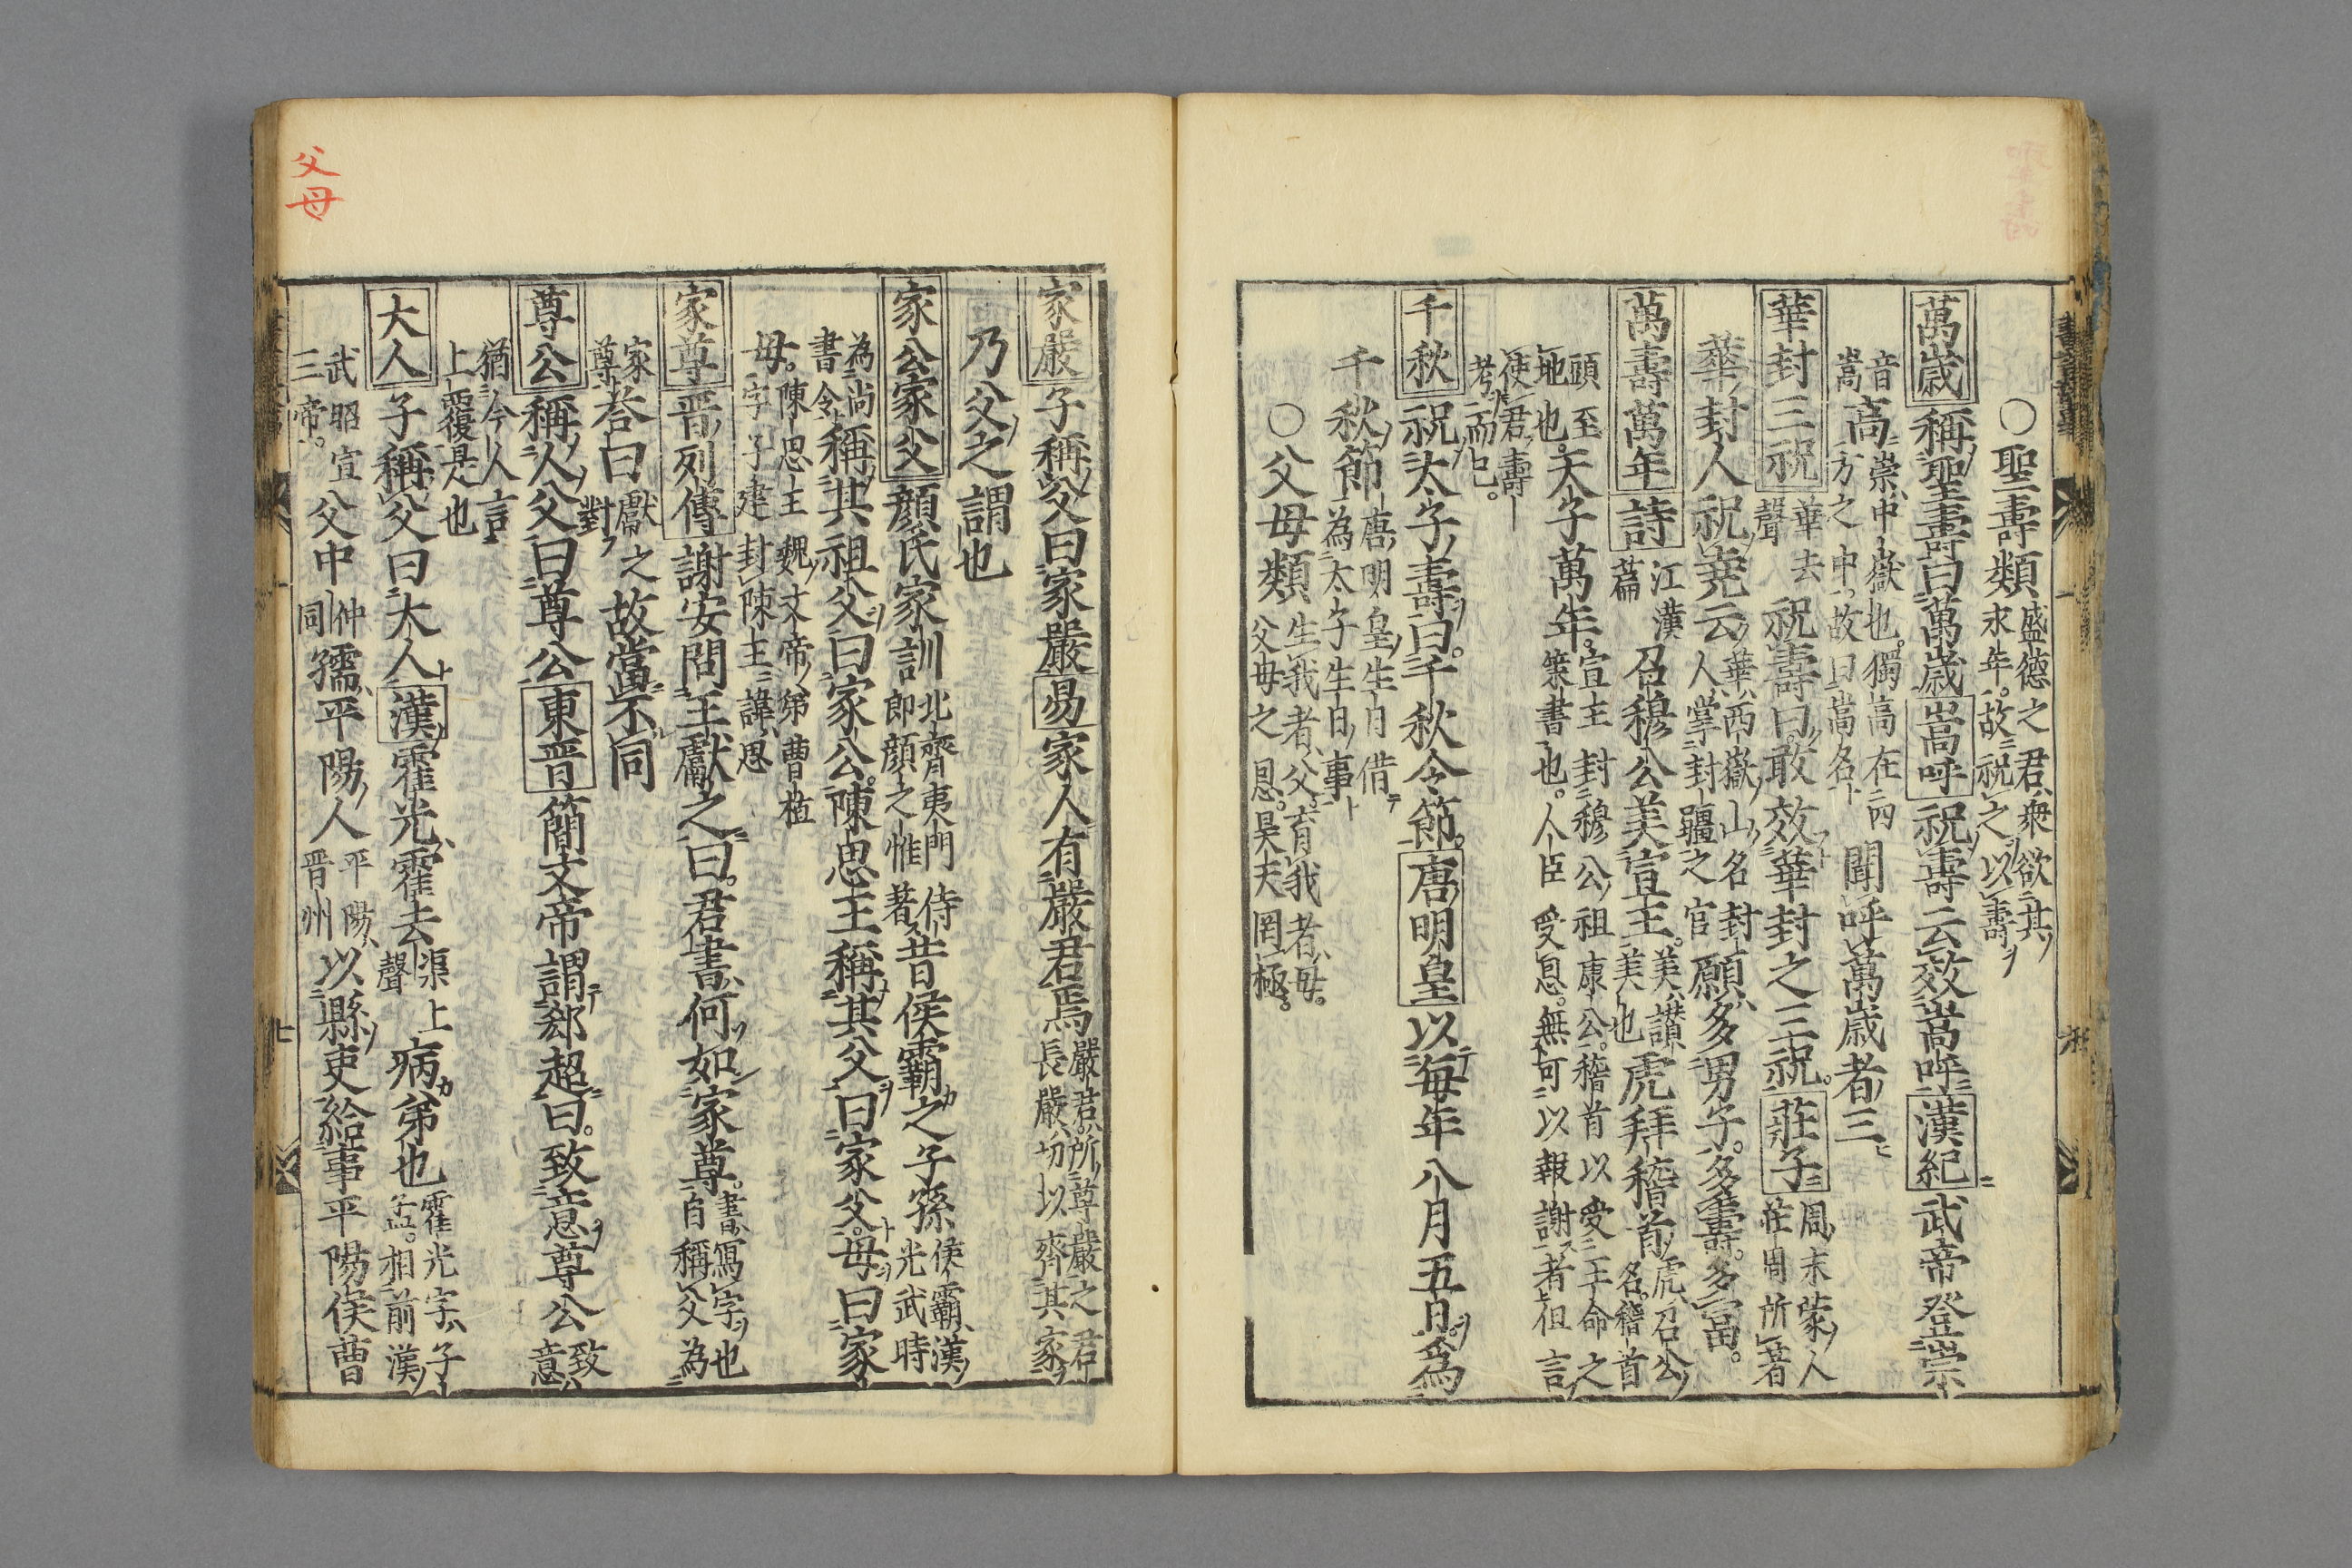 ○聖壽類 盛德之君衆欲其
永年。故祝之以壽
萬歲 稱聖壽曰萬歲嵩呼祝壽云效嵩呼漢紀武帝登崇
音嵩高 崇中嶽也。獨高在四
方之中故曰嵩名 聞呼萬歲者三
華封三祝 華去
聲 祝壽曰敢效華封之三祝。莊子 周末蒙人
莊周所著
華封人祝堯云 華西嶽山名封
人掌封疆之官 願多男子。多壽。多富。
萬壽萬年 詩 江漢
篇 召穆公美宣王。 美讃
美也 虎拜稽首 虎召公
名。稽首
頭至
地也。 天子萬年。 宣王封穆公祖康公。稽首以受王命之
策書也。人臣受恩。無可以報謝者但言
使君壽
考而已。
千秋 祝太子壽曰。千秋令節。唐明皇以每年八月五日爲
千秋節 唐明皇生日借
為太子生日事
○父母類 生我者父。育我者母。
父母之恩。昊天罔極。
家嚴 子稱父曰家嚴易家人有嚴君焉 嚴君所尊嚴之君
長嚴切以齊其家
乃父之謂也
家公家父 顏氏家訓 北齊夷門侍
即顏之惟著 昔侯霸之子孫 侯霸漢
光武時
為尚
書令 稱其祖父曰家公。陳思王稱其父曰家父。母曰家
母。 陳思王魏文帝弟曹植
字子建封陳王諱思
家尊 晋列傳謝安問王獻之曰。君書何如家尊。 書寫字也
自稱父為
家
尊 答曰 獻之
對 故當不同
尊公 稱人父曰尊公東晋簡文帝謂郄超曰。致意尊公 致
意
猶今人言
上覆是也
大人 子稱父曰大人漢霍光霍去 渠上
聲 病弟也 霍光字子
孟。相前漢
武昭宣
三帝。 父中 仲
同 孺平陽人 平陽
晋州 以縣吏給事平陽侯曹
七
父母